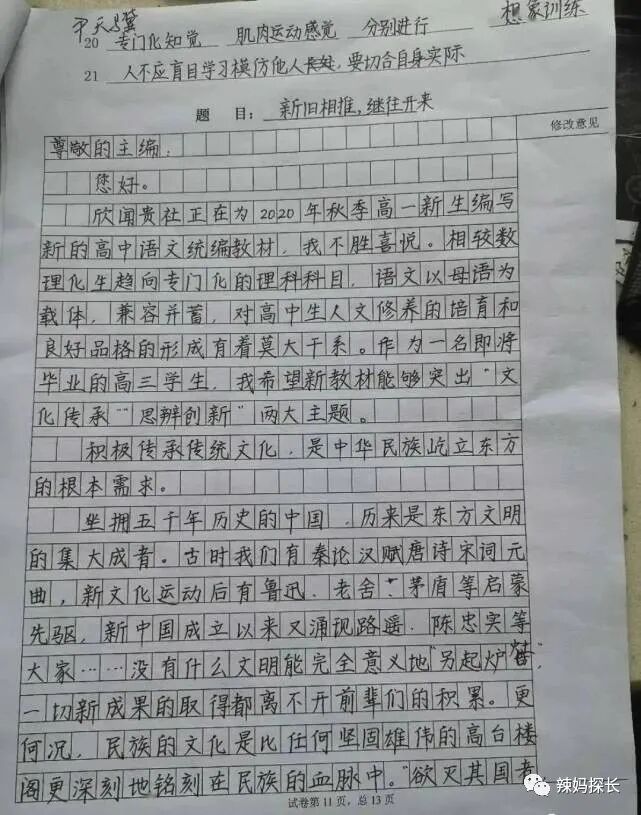 尹天骥
20 专门化知觉 肌肉运动感觉 分别进行 想象训练
21 人不应盲目学习模仿他人长处,要切合自身实际
题 目: 新旧相推,继往开来
修改意见
尊敬的主编:
您好。
欣闻贵社正在为2020年秋季高一新生编写
新的高中语文统编教材,我不胜喜悦。相较数
理化生趋向专门化的理科科目,语文以母语为
载体,兼容并蓄,对高中生人文修养的培育和
良好品格的形成有着莫大干系。作为一名即将
毕业的高三学生,我希望新教材能够突出“文
化传承”“思辨创新”两大主题。
积极传承传统文化,是中华民族屹立东方
的根本需求。
坐拥五千年历史的中国,历来是东方文明
的集大成者。古时我们有秦论汉赋唐诗宋词元
曲,新文化运动后有鲁迅、老舍、茅盾等启蒙
先驱,新中国成立以来又涌现路遥、陈忠实等
大家……没有什么文明能完全意义地“另起炉灶”,
一切新成果的取得都离不开前辈们的积累。更
何况,民族的文化是比任何坚固雄伟的高台楼
阁更深刻地铭刻在民族的血脉中。“欲灭其国者
试卷第11页,总13页
辣妈探长